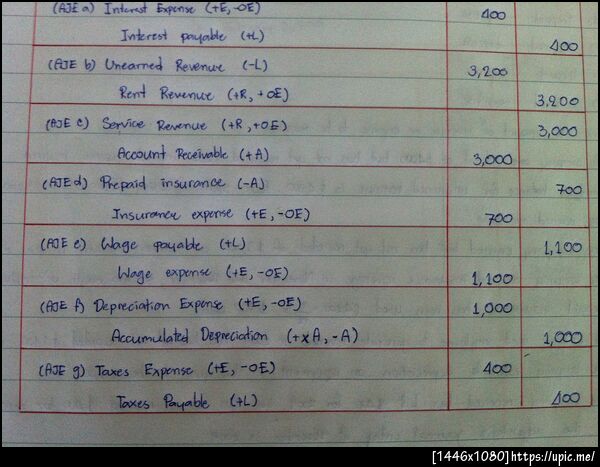 (AJE a) Interest Expense (+E, -OE) 400
Interest payable (+L) 400
(AJE b) Unearned Revenue (-L) 3,200
Rent Revenue (+R, +OE) 3,200
(AJE c) Service Revenue (+R, +OE) 3,000
Account Receivable (+A) 3,000
(AJE d) Prepaid insurance (-A) 700
Insurance expense (+E, -OE) 700
(AJE e) Wage payable (+L) 1,100
Wage expense (+E, -OE) 1,100
(AJE f) Depreciation Expense (+E, -OE) 1,000
Accumulated Depreciation (+xA, -A) 1,000
(AJE g) Taxes Expense (+E, -OE) 400
Taxes Payable (+L) 400
[1446x1080]https://upic.me/